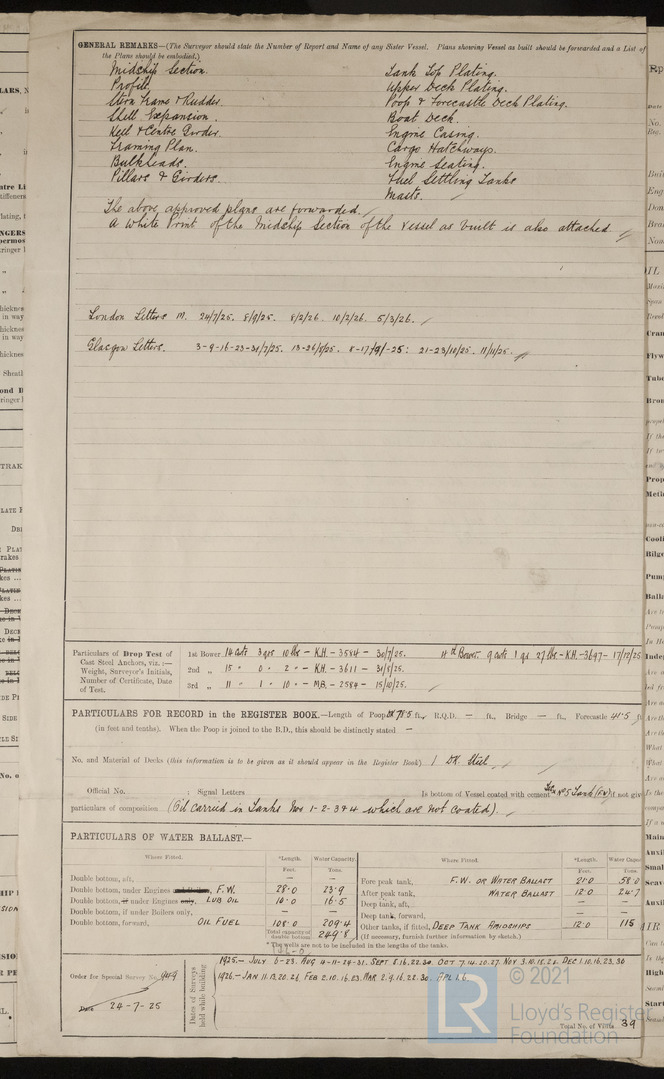 GENERAL REMARKS—(The Surveyor should state the Number of Report and Name of any Sister Vessel. Plans showing Vessel as built should be forwarded and a List of
the Plans should be embodied.)
Midship Section. Tank Top Plating.
Profile. Upper Deck Plating.
Stern Frame & Rudder. Poop & Forecastle Deck Plating.
Shell Expansion. Boat Deck.
Keel & Centre Girder. Engine Casing.
Framing Plan. Cargo Hatchways.
Bulkheads. Engine Seating.
Pillars & Girders. Fuel Settling Tanks
Masts.
The above approved plans are forwarded.
A White Print of the Midship Section of the Vessel as built is also attached.
London Letters M. 24/7/25. 8/9/25. 8/2/26. 10/2/26. 5/3/26.
Glasgow Letters. 3-9-16-23-31/7/25. 13-26/8/25. 8-17/9/-25: 21-23/10/25. 11/11/25.
Particulars of Drop Test of Cast Steel Anchors, viz.:— Weight, Surveyor's Initials, Number of Certificate, Date of Test.
1st Bower. 14 cwts 3 qrs 10 lbs - K.H. - 3584 - 30/7/25. 4th Bower. 9 cwts 1 qr 27 lbs - K.H. - 3697 - 17/12/25
2nd „ 15 " 0 " 2 " - K.H. - 3611 - 31/8/25.
3rd „ 11 " 1 " 10 " - M.B. - 2584 - 15/10/25.
PARTICULARS FOR RECORD in the REGISTER BOOK.—Length of Poop 78.5 ft., R.Q.D. — ft., Bridge — ft., Forecastle 41.5 ft
(in feet and tenths). When the Poop is joined to the B.D., this should be distinctly stated —
No. and Material of Decks (this information is to be given as it should appear in the Register Book) 1 Dk Steel
Official No. ; Signal Letters Is bottom of Vessel coated with cement No 5 Tank (F.W) if not give
particulars of composition (Oil carried in Tanks Nos 1-2-3 & 4 which are not coated).
PARTICULARS OF WATER BALLAST.—
Where Fitted. *Length. Water Capacity. Where Fitted. *Length. Water Capac
Feet. Tons. Feet. Tons.
Double bottom, aft, — —
Double bottom, under Engines and Boilers, F.W. 28.0 23.9
Double bottom, if under Engines only, LUB OIL 10.0 16.5
Double bottom, if under Boilers only, — —
Double bottom, forward, OIL FUEL 108.0 209.4
Total capacity of double bottom 249.8
Fore peak tank, F.W. OR WATER BALLAST 21.0 58.0
After peak tank, WATER BALLAST 12.0 24.7
Deep tank, aft, — —
Deep tank, forward, — —
Other tanks, if fitted, DEEP TANK AMIDSHIPS 12.0 115
(If necessary, furnish further information by sketch.)
* The wells are not to be included in the lengths of the tanks.
Order for Special Survey No. 949
Date 24-7-25
Dates of Surveys held while building
1925.- JULY 6-23. AUG 4-11-24-31. SEPT 8.16.22.30. OCT 7.14.20.27. NOV 3.10.18.26. DEC 1.10.16.23.30
1926.- JAN 11.13.20.26. FEB 2.10.16.23. MAR 2.9.16.22.30. APL 1.6.
Total No. of Visits 39
© 2021
Lloyd's Register
Foundation
LR